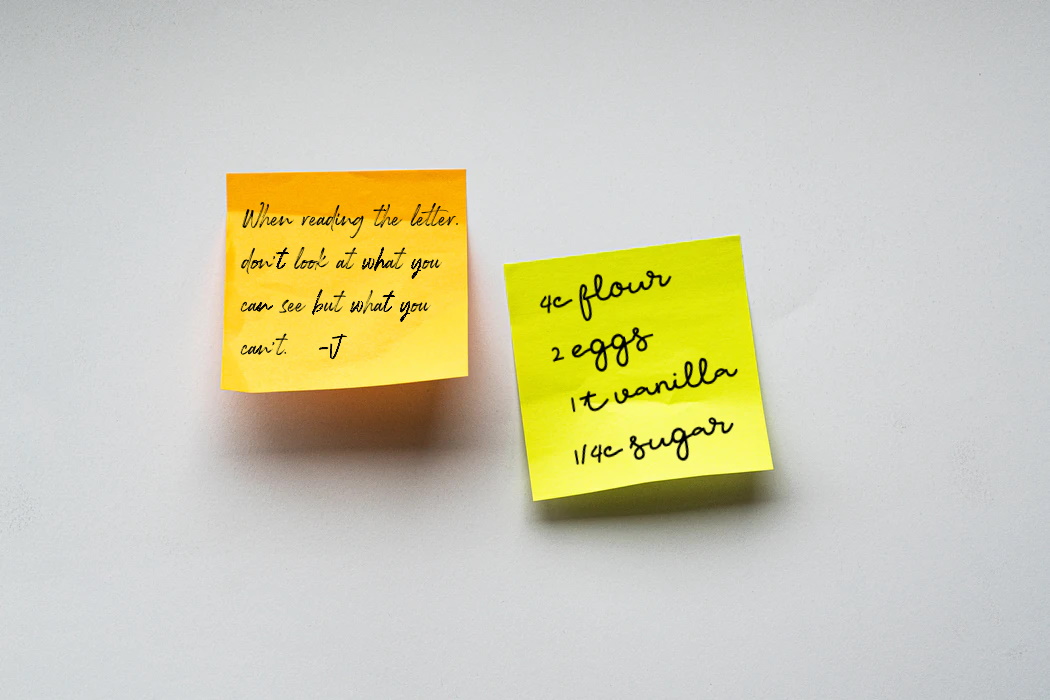 When reading the letter.
don't look at what you
can see but what you
can't. -J
4c flour
2 eggs
1t vanilla
1/4c sugar